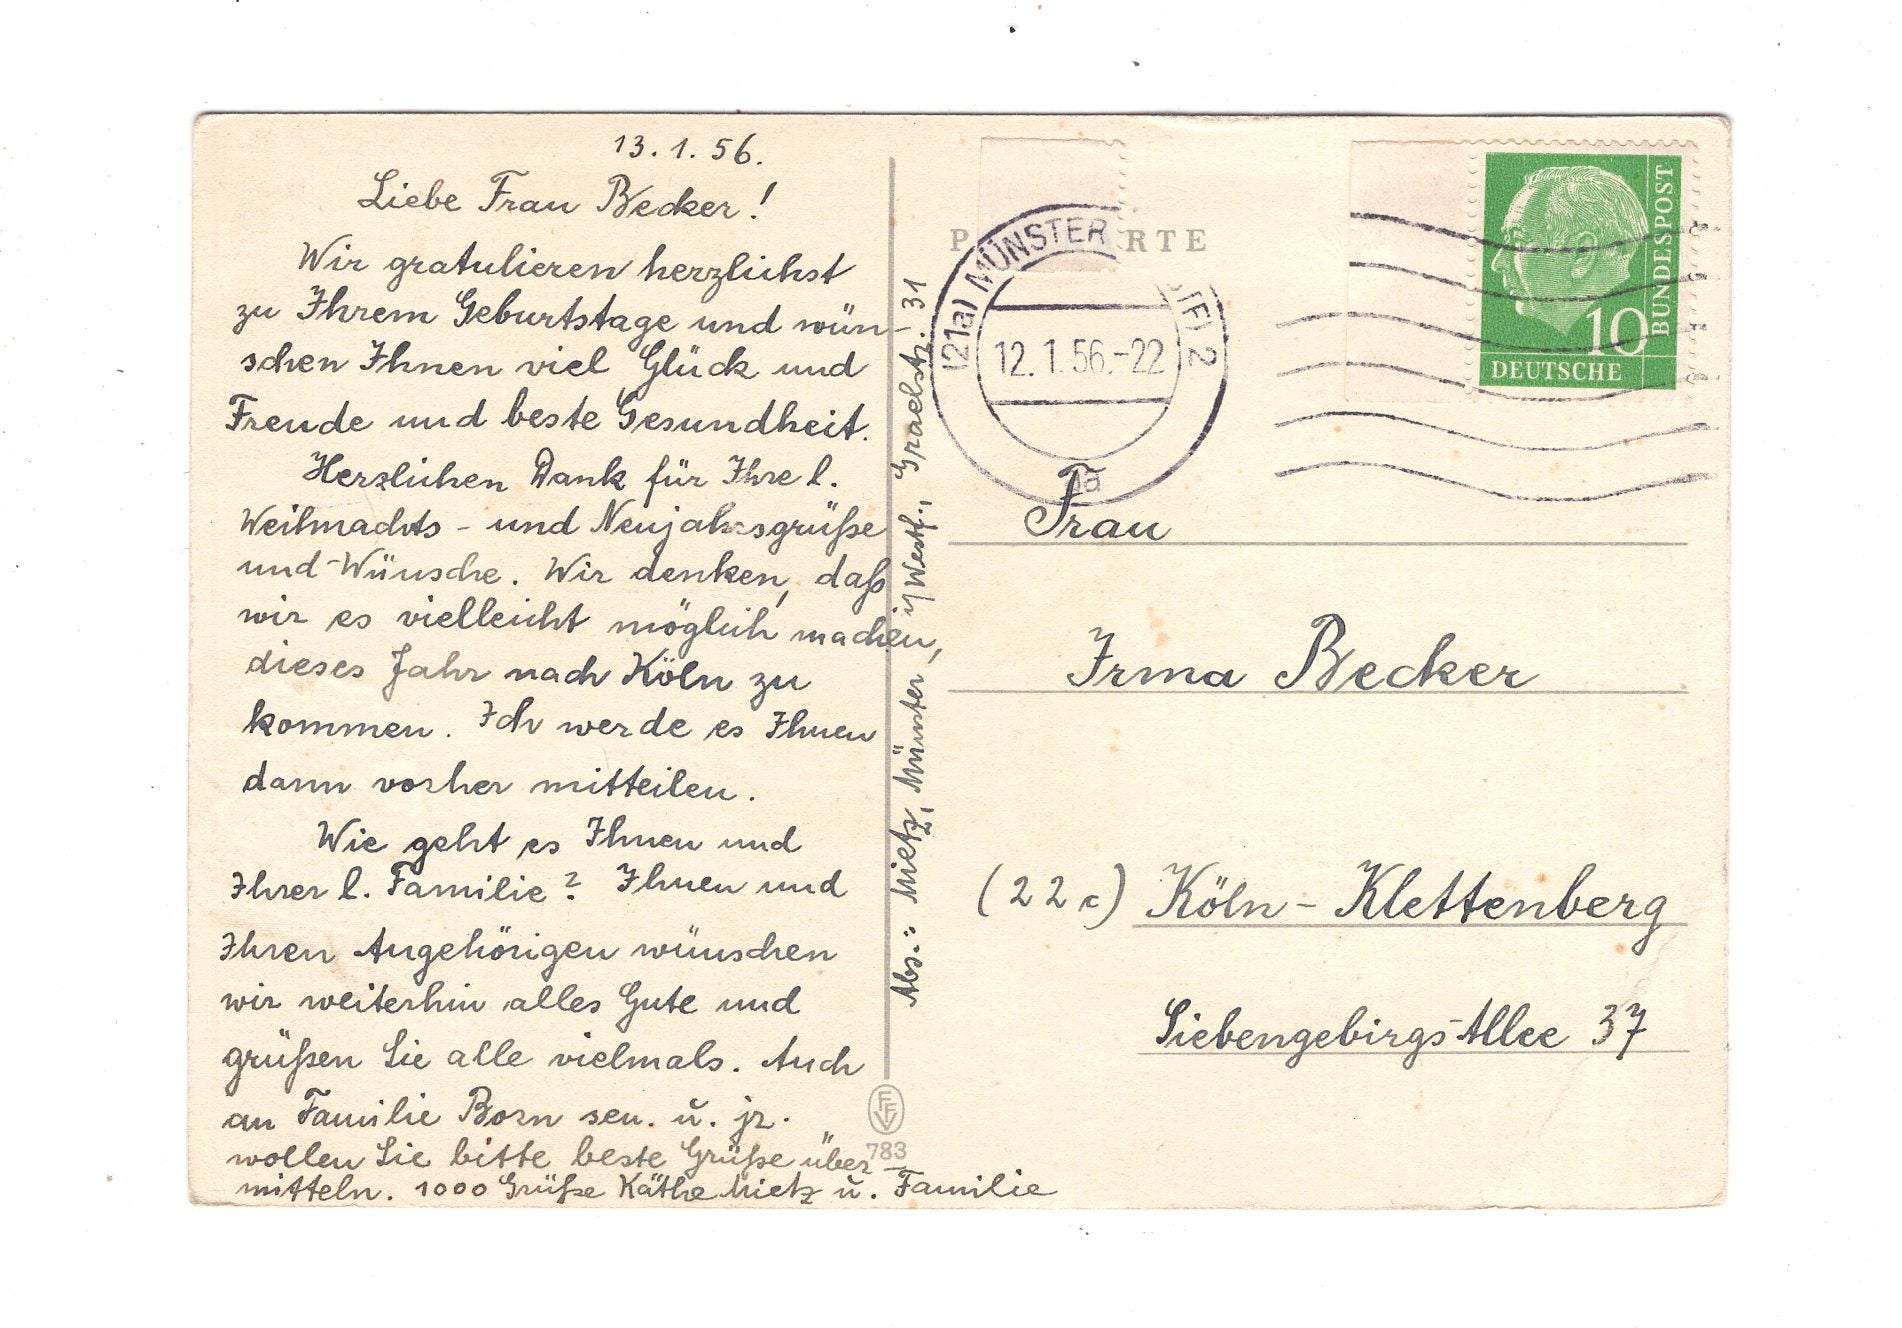 13.1.56.
Liebe Frau Becker!
Wir gratulieren herzlichst
zu Ihrem Geburtstage und wün-
schen Ihnen viel Glück und
Freude und beste Gesundheit.
Herzlichen Dank für Ihre l.
Weihnachts- und Neujahrsgrüße
und -Wünsche. Wir denken, daß
wir es vielleicht möglich machen,
dieses Jahr nach Köln zu
kommen. Ich werde es Ihnen
dann vorher mitteilen.
Wie geht es Ihnen und
Ihrer l. Familie? Ihnen und
Ihren Angehörigen wünschen
wir weiterhin alles Gute und
grüßen Sie alle vielmals. Auch
an Familie Born sen. u. jr.
wollen Sie bitte beste Grüße über-
mitteln. 1000 Grüße Käthe Mietz u. Familie
Abs.: Mietz, Münster i/Westf., Graelstr. 31
783
P RTE
(21a) MÜNSTER TF) 2
12.1.56.-22
10
DEUTSCHE
BUNDESPOST
Frau
Irma Becker
(22c) Köln-Klettenberg
Siebengebirgs-Allee 37